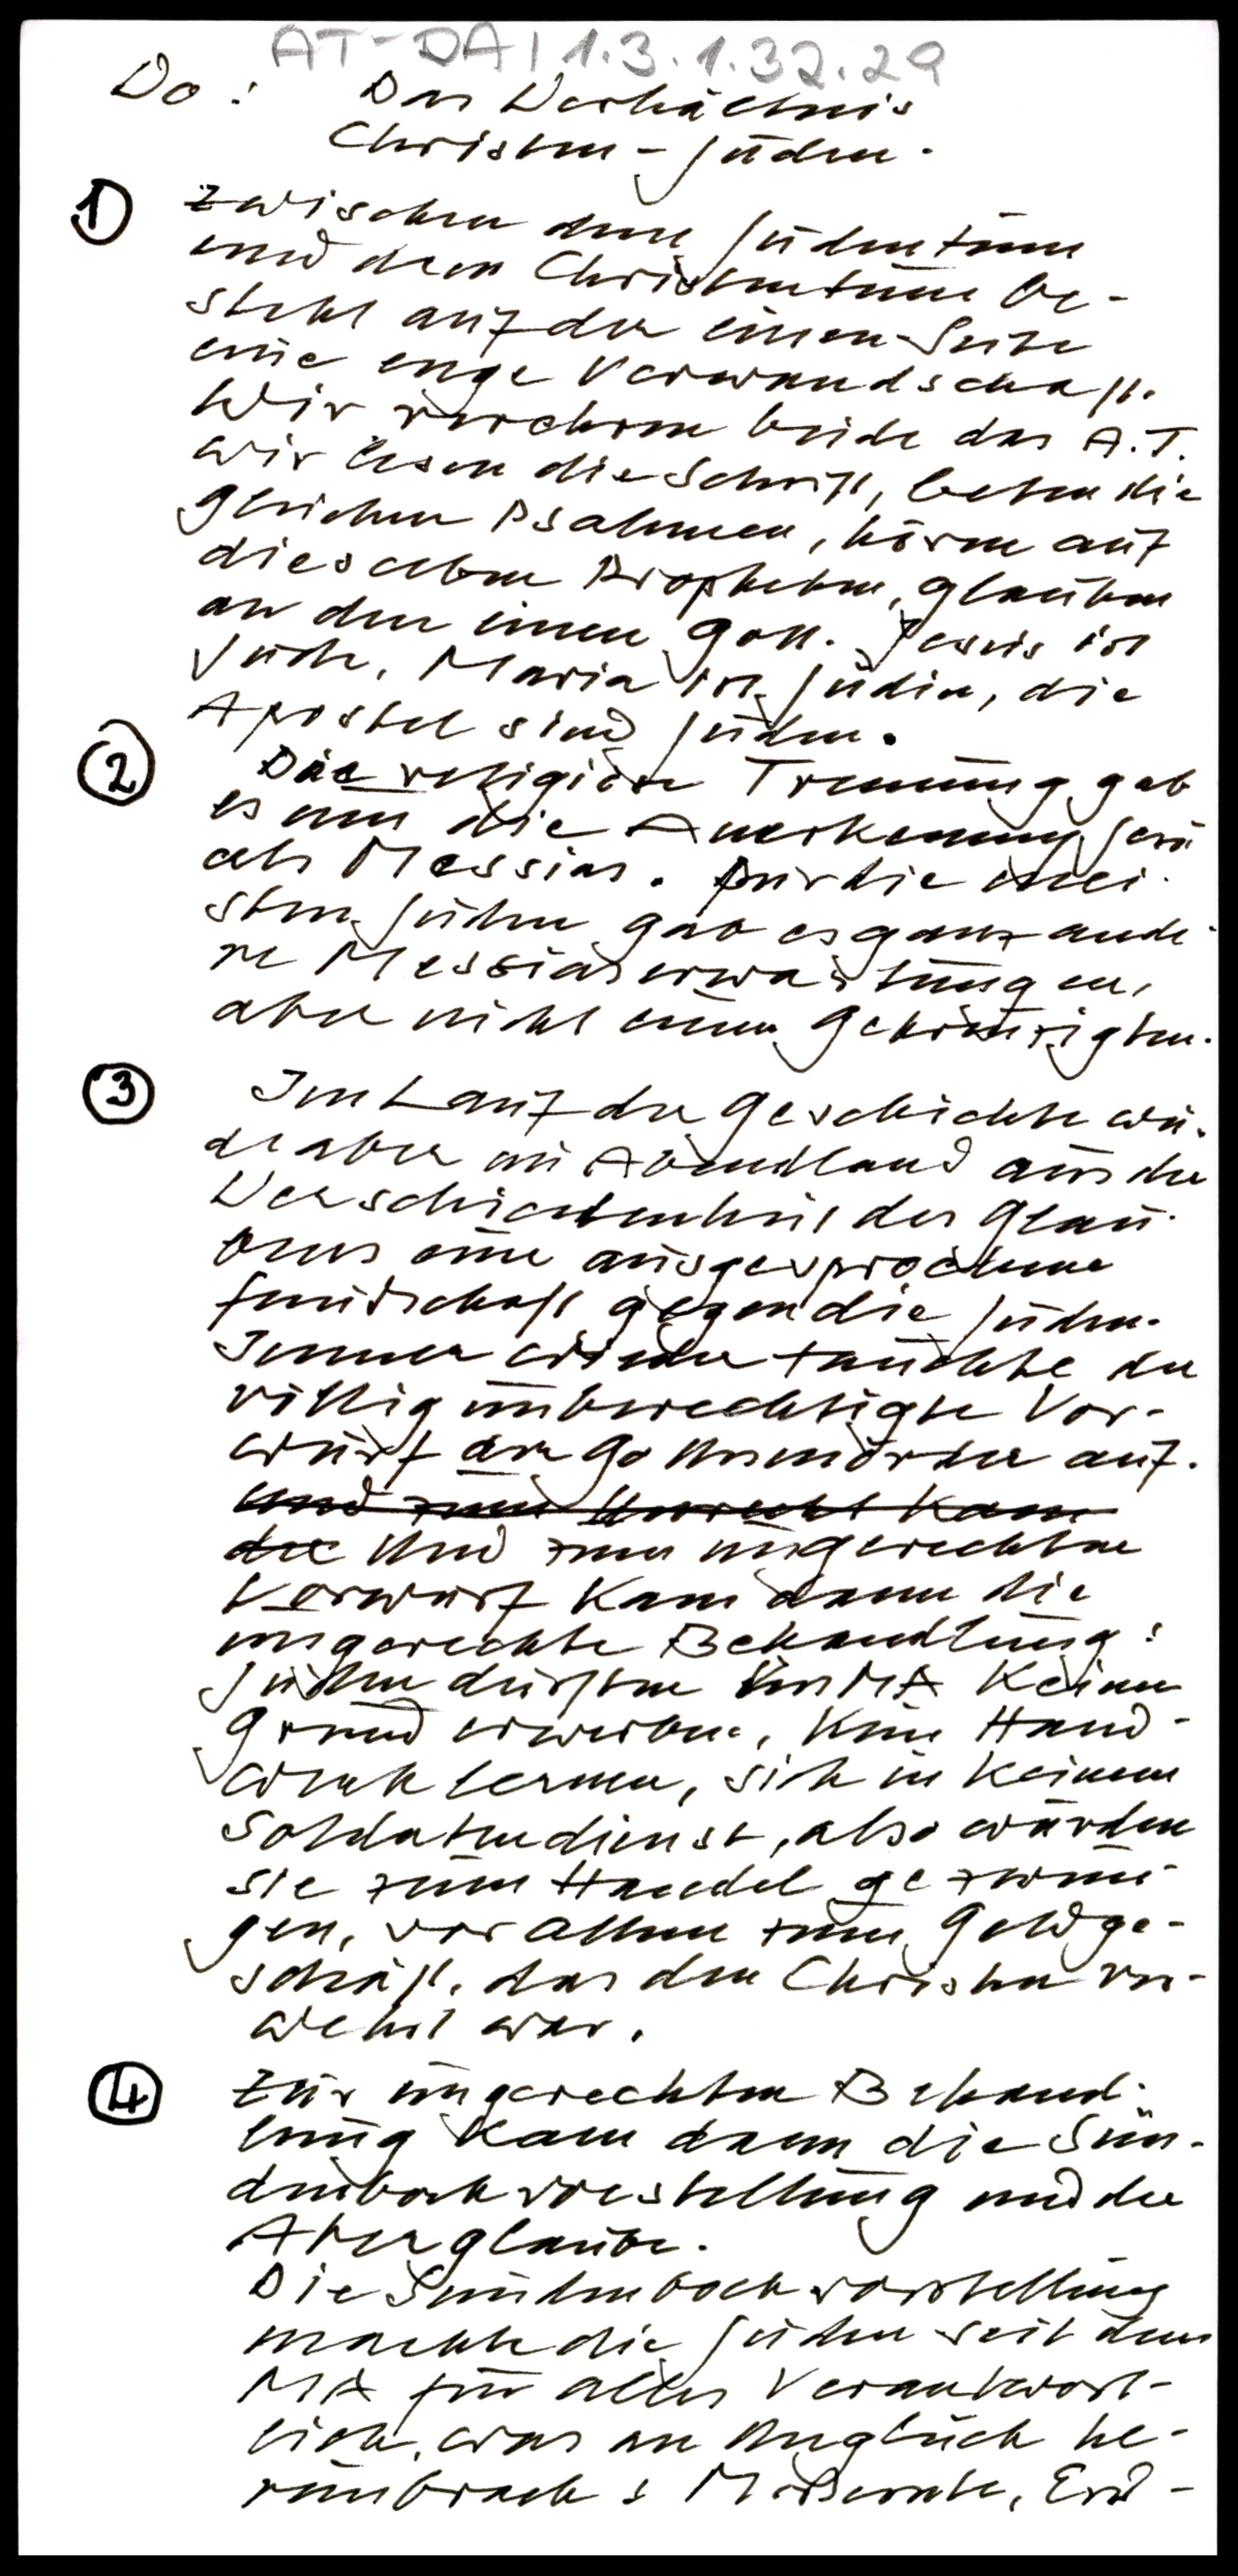 AT-DA | 1.3.1.32.29
Do: Das Verhältnis
Christen - Juden.
1) Zwischen dem Judentum
und dem Christentum be-
steht auf der einen Seite
eine enge Verwandschaft.
Wir verehren beide das A.T.
wir lesen die Schrift, beten die
gleichen Psalmen, hören auf
dieselben Propheten, glauben
an den einen Gott. Jesus ist
Jude, Maria ist Jüdin, die
Apostel sind Juden.
2 Die religiöse Trennung gab
es um die Anerkennung Jesu
als Messias. Für die mei-
sten Juden gab es ganz ande-
re Messiaserwartungen,
aber nicht einen Gekreuzigten.
3 Im Lauf der Geschichte wu.
de aber im Abendland aus der
Verschiedenheit des Glau-
bens eine ausgesprochene
Feindschaft gegen die Juden.
Immer wieder tauchte der
völlig unberechtigte Vor-
wurf der Gottesmörder auf.
und zum Unrecht kam
die Und zum ungerechten
Vorwurf kam dann die
ungerechte Behandlung:
Juden durften im MA keinen
Grund erwerben, kein Hand-
werk lernen, sich in keinem
Soldatendienst, also wurden
sie zum Handel gezwun-
gen, vor allem zum Geldge-
schäft, das den Christen ver-
wehrt war.
4 Zur ungerechten Behand-
lung kam dann die Sün-
denbockvorstellung und der
Aberglaube.
Die Sündenbockvorstellung
machte die Juden seit dem
MA für alles verantwort-
lich, was an Unglück he-
reinbrach: Mißernte, Erd-